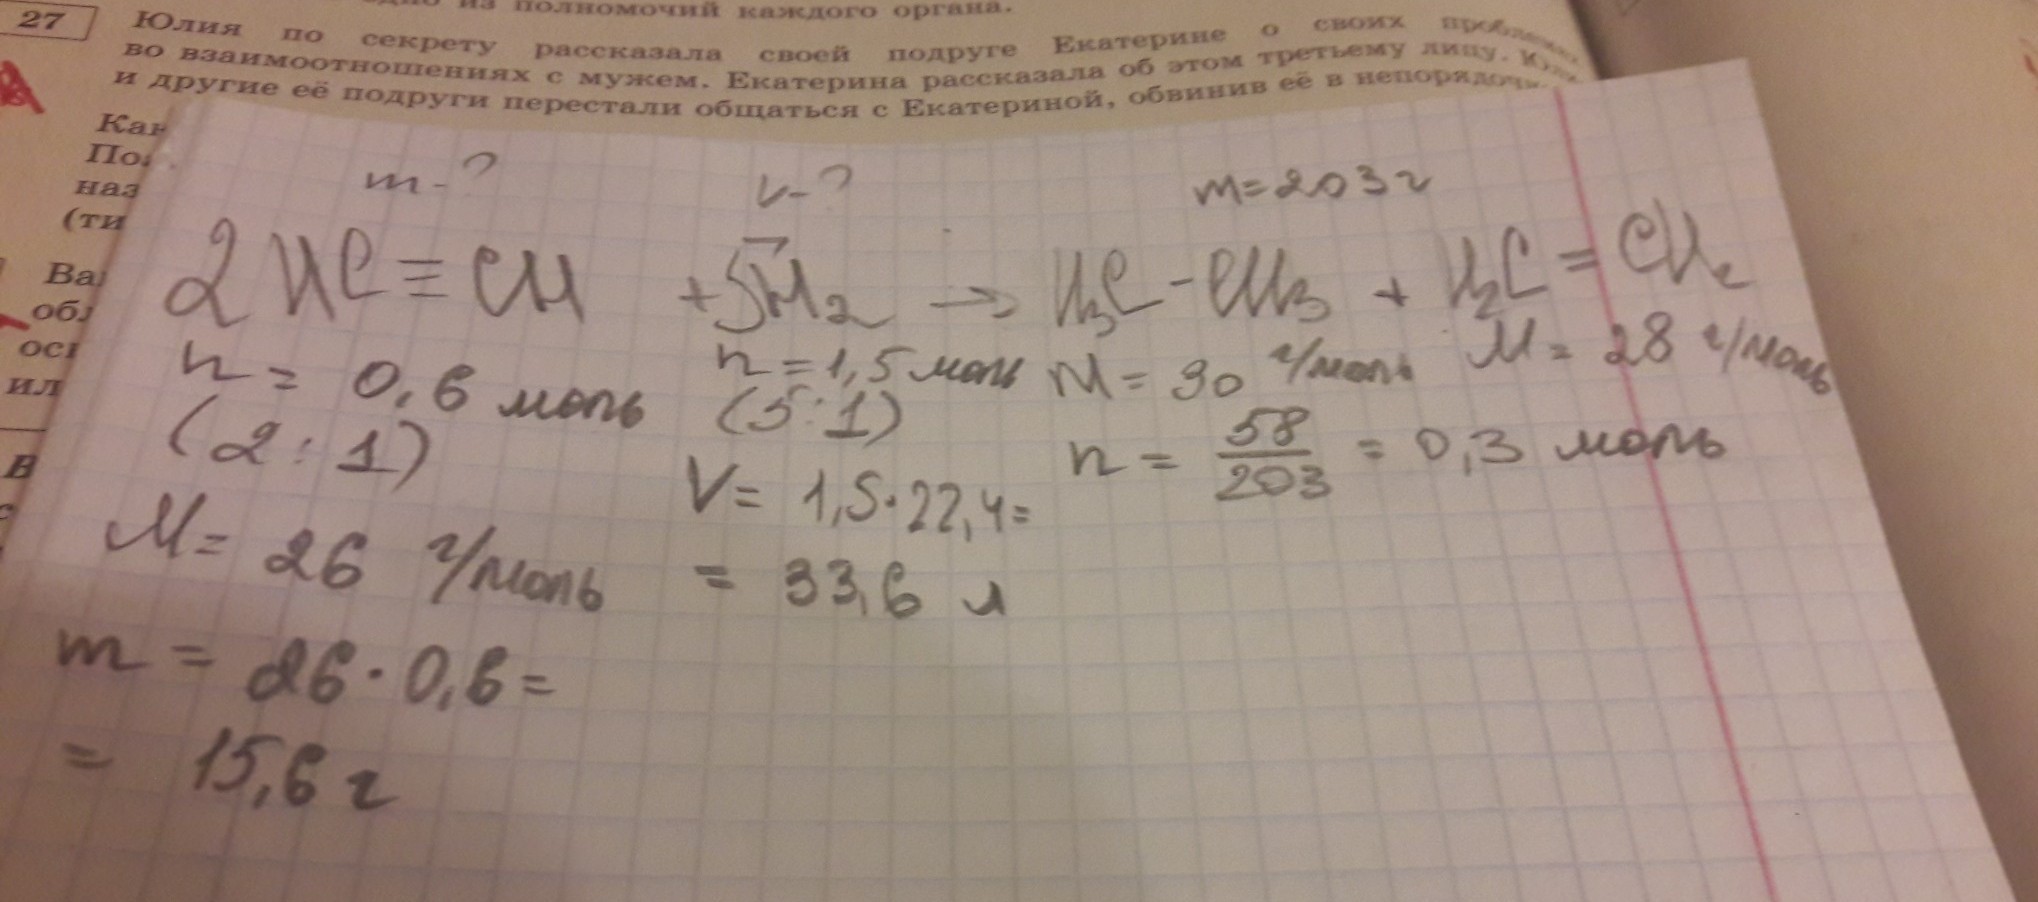 из полномочий каждого органа.
27 Юлия по секрету рассказала своей подруге Екатерине о своих
во взаимоотношениях с мужем. Екатерина рассказала об этом третьему лицу.
и другие её подруги перестали общаться с Екатериной, обвинив её в
наз
(ти
об
ос
ил
В
m-? V-? m=203г
2HC≡CH + 5H₂ → H₃C-CH₃ + H₂C=CH₂
n = 0,6 моль n = 1,5 моль M = 30 г/моль M = 28 г/моль
(2:1) (5:1) n = 58/203 = 0,3 моль
M = 26 г/моль V = 1,5·22,4=
= 33,6 л
m = 26·0,6=
= 15,6г